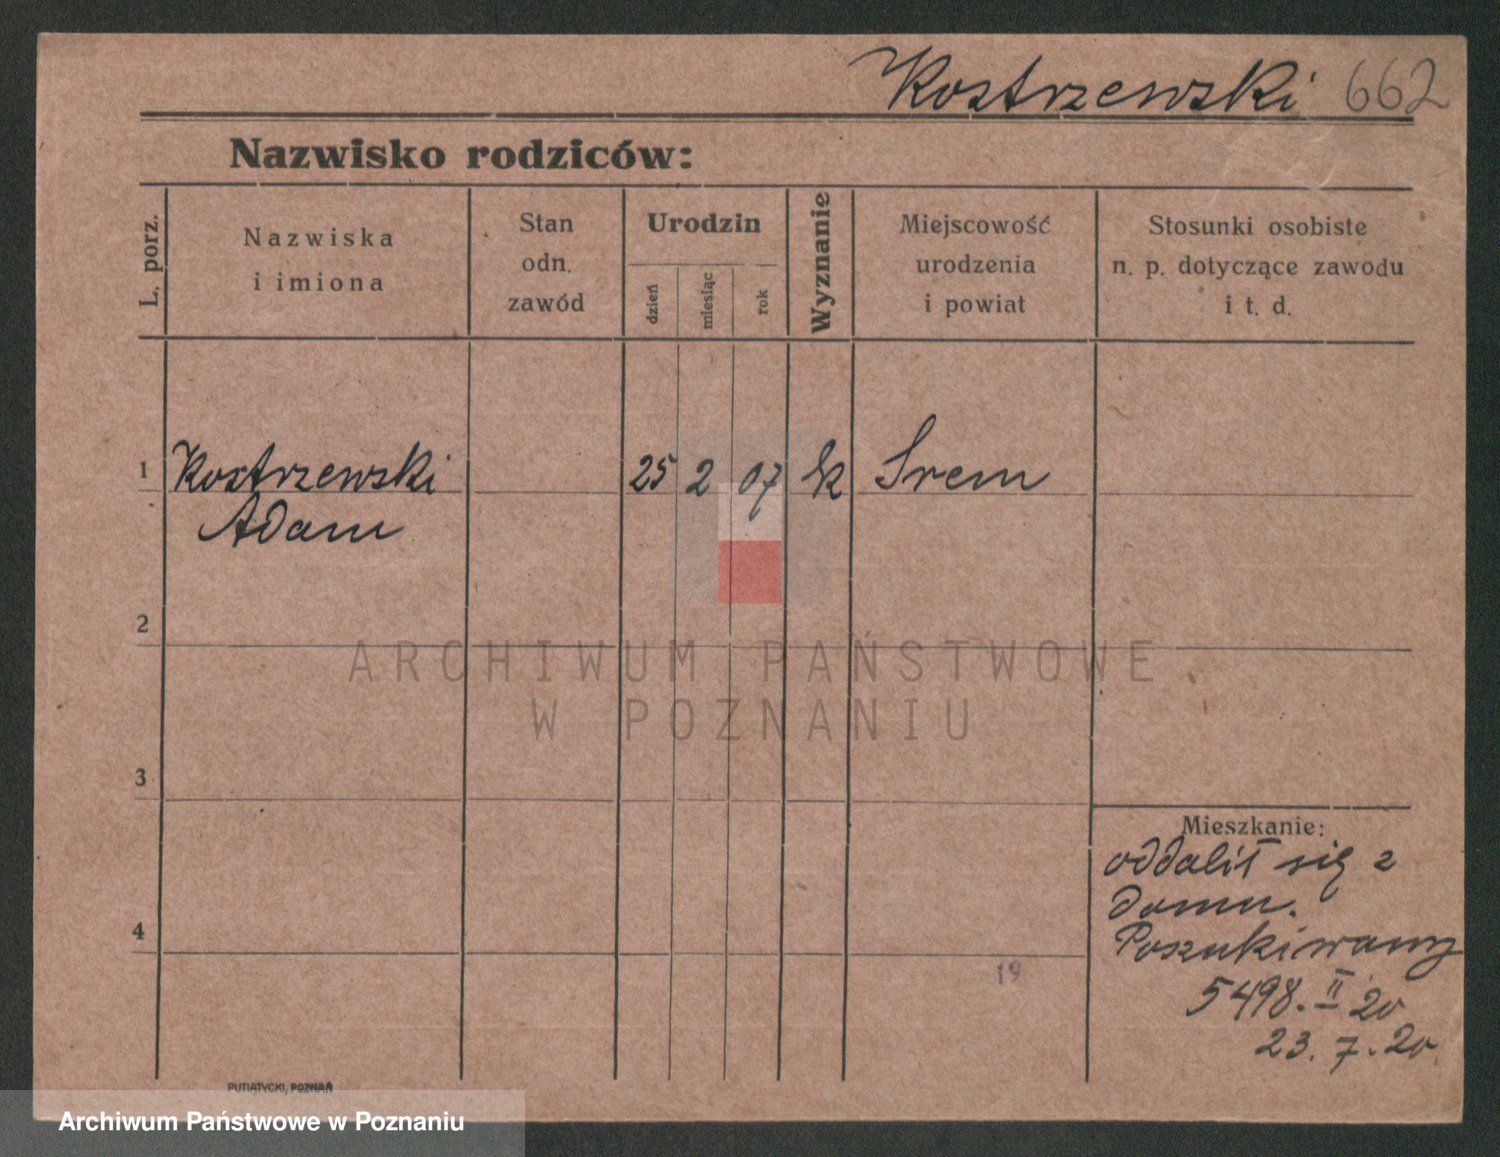 Kostrzewski 662
Nazwisko rodziców:
L. porz.
Nazwiska
i imiona
Stan
odn.
zawód
Urodzin
dzień
miesiąc
rok
Wyznanie
Miejscowość
urodzenia
i powiat
Stosunki osobiste
n. p. dotyczące zawodu
i t. d.
1 Kostrzewski 25 2 07 k Srem
Adam
2
ARCHIWUM PAŃSTWOWE
W POZNANIU
3
Mieszkanie:
oddalił się z
domu.
Poszukiwany
4
5498. II 20
19
23. 7. 20
PUTIATYCKI, POZNAŃ
Archiwum Państwowe w Poznaniu